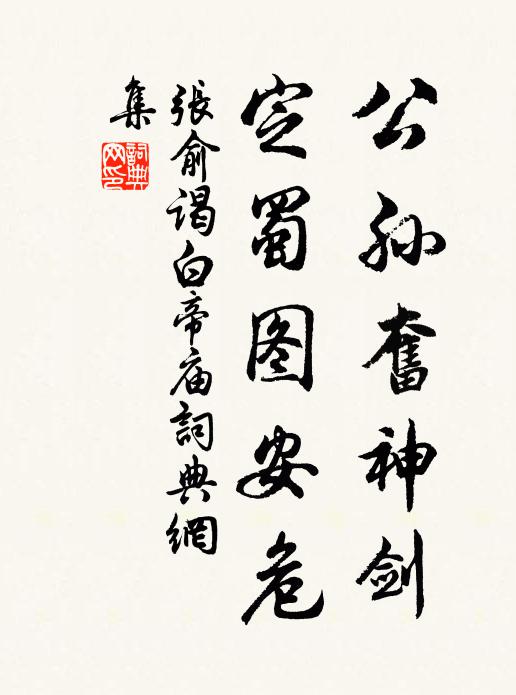 公孙奮神剑
定蜀图安危
張俞谒白帝庙詞典網
集
詞典网印